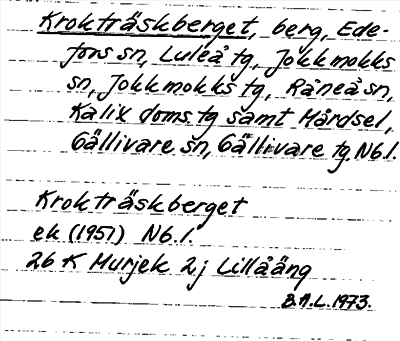 Krokträskberget, berg, Ede-
fors sn, Luleå tg, Jokkmokks
sn, Jokkmokks tg, Råneå sn,
Kalix doms. tg samt Mårdsel,
Gällivare sn, Gällivare tg Nb.l.
Krokträskberget
ek (1951) Nb.l.
26 K Murjek 2j Lillåäng
B.A.L. 1973.